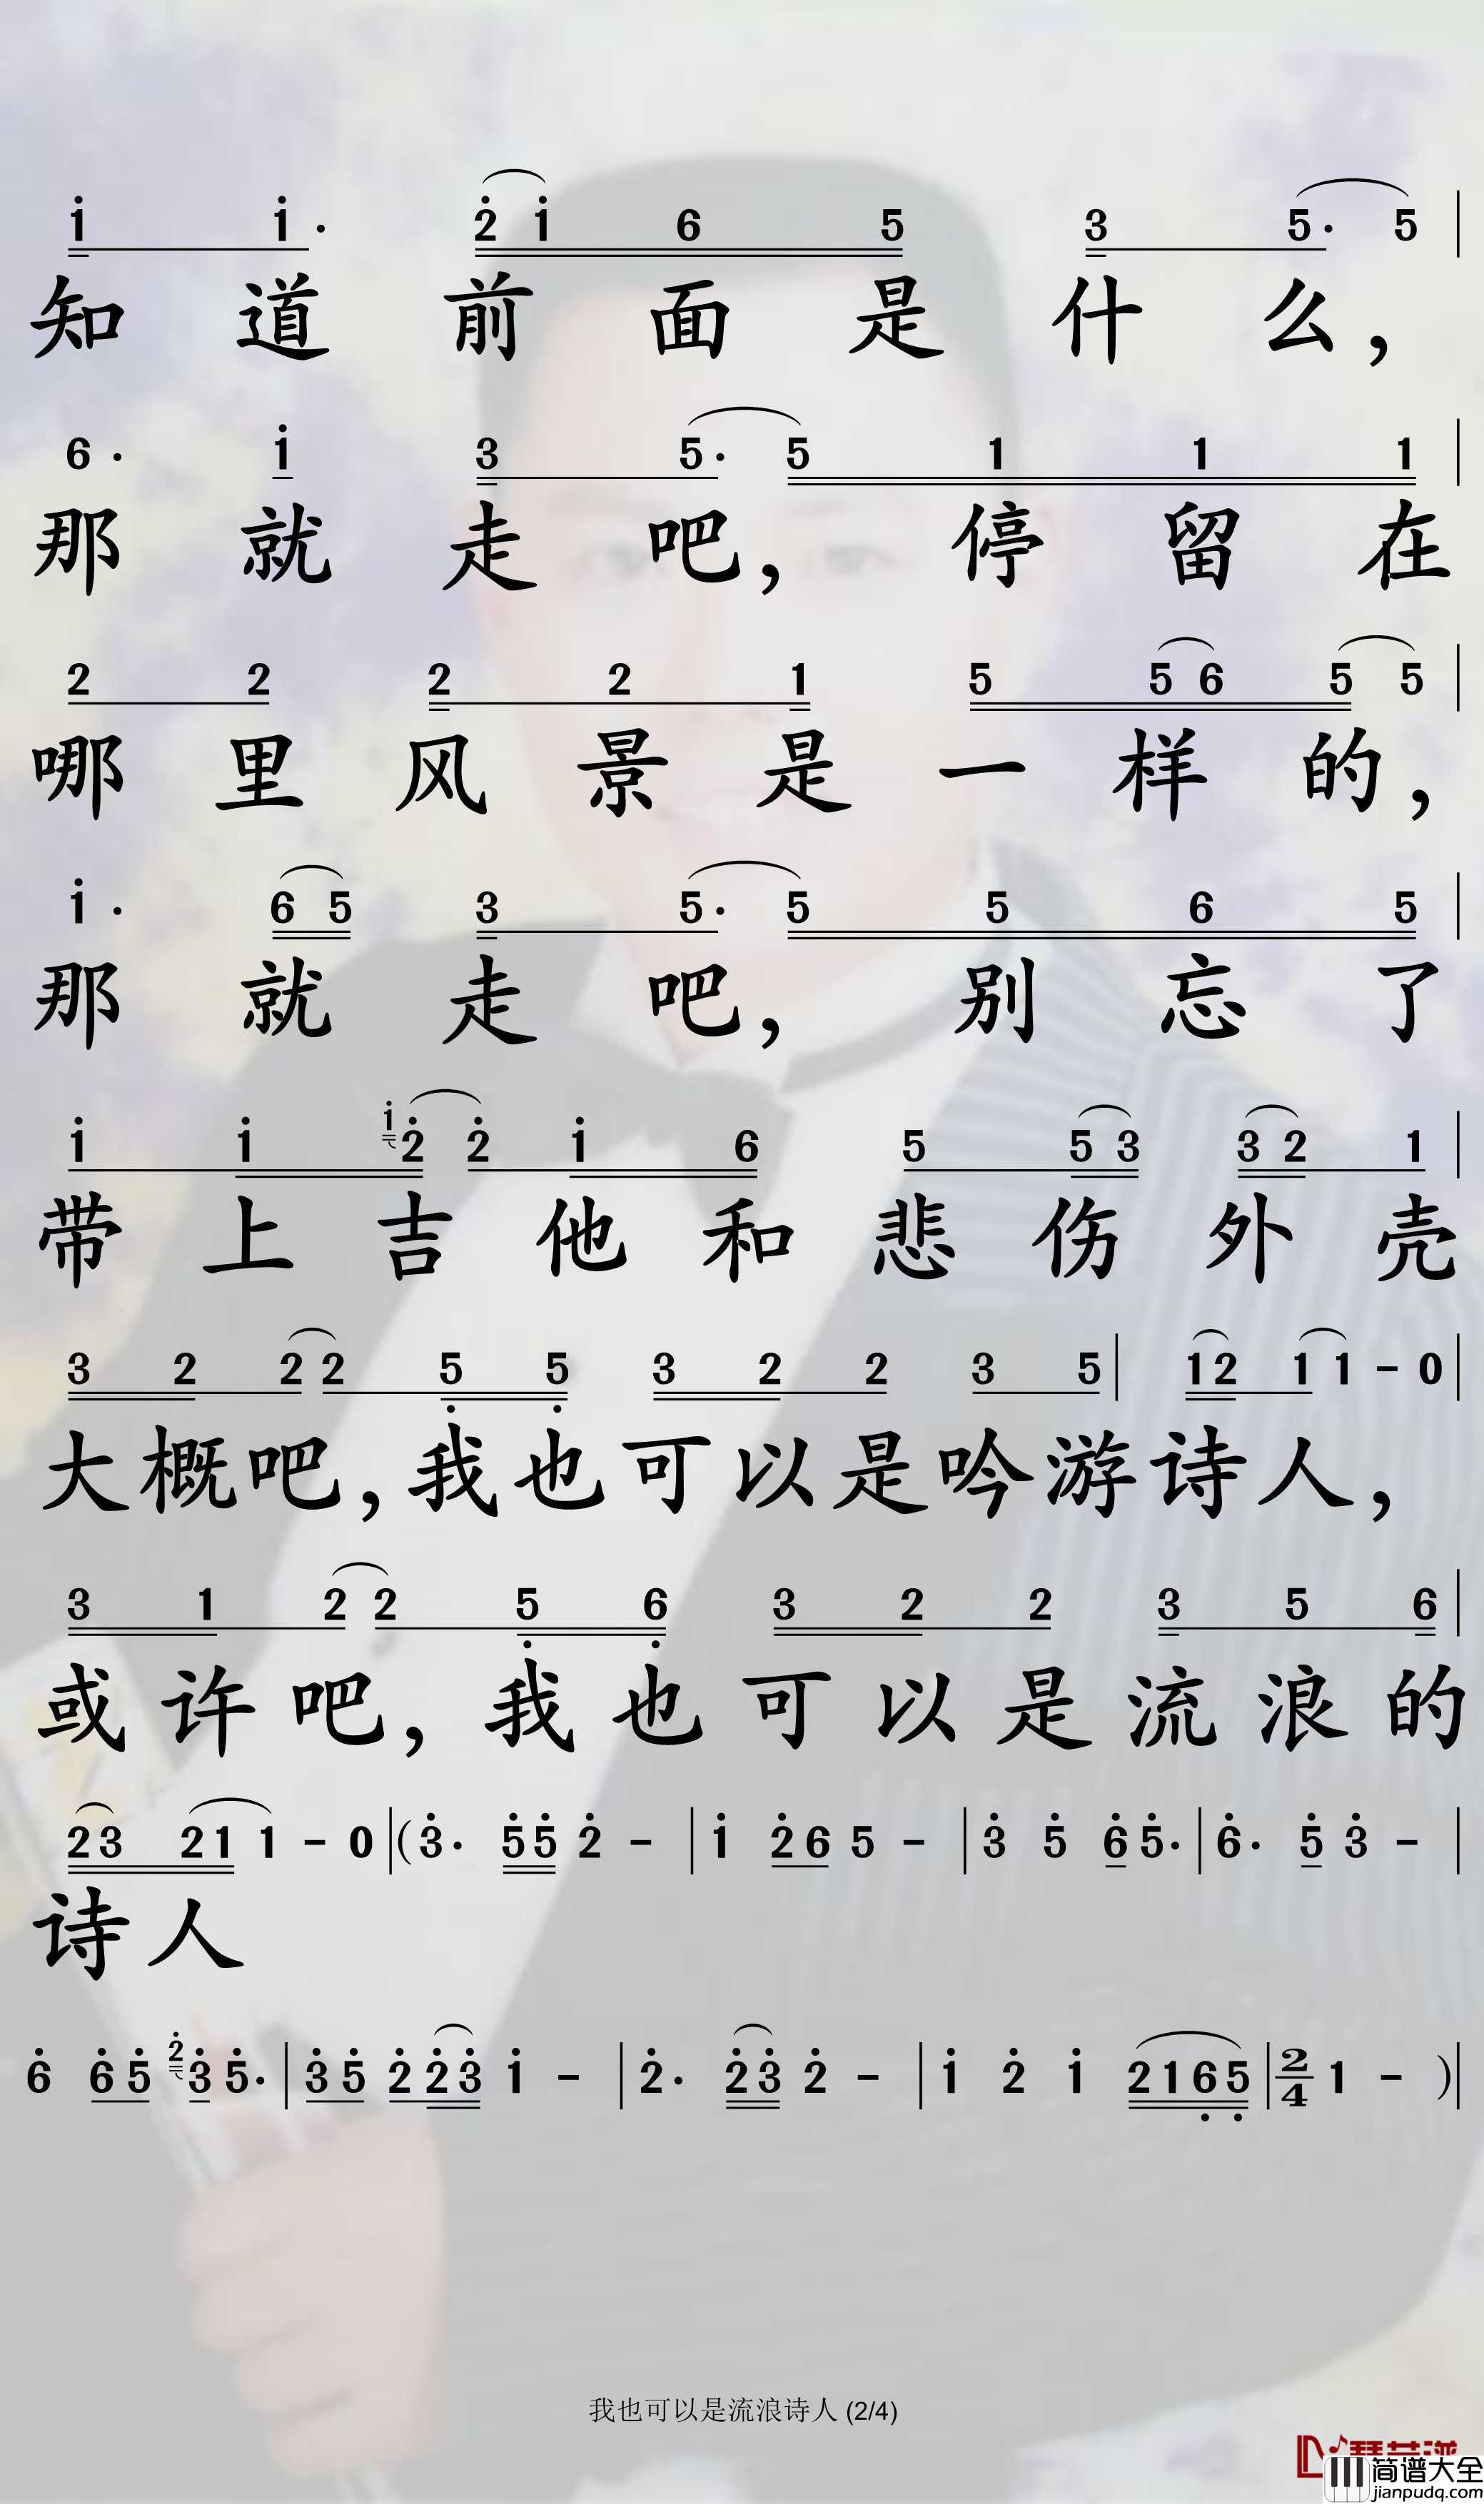 1 1. 2 1 6 5 3 5. 5
知道前面是什么，
6. 1 3 5. 5 1 1 1
那就走吧，停留在
2 2 2 2 1 5 5 6 5 5
哪里风景是一样的，
1. 6 5 3 5. 5 5 6 5
那就走吧，别忘了
1 1 1 2 2 1 6 5 5 3 3 2 1
带上吉他和悲伤外壳
3 2 2 2 5 5 3 2 2 3 5 | 1 2 1 1 - 0
大概吧，我也可以是吟游诗人，
3 1 2 2 5 6 3 2 2 3 5 6
或许吧，我也可以是流浪的
2 3 2 1 1 - 0 | (3. 5 5 2 - | 1 2 6 5 - | 3 5 6 5. | 6. 5 3 - |
诗人
6 6 5 2 3 5. | 3 5 2 2 3 1 - | 2. 2 3 2 - | 1 2 1 2 1 6 5 | 2/4 1 - ) |
我也可以是流浪诗人 (2/4)
简谱大全
jianpudq.com